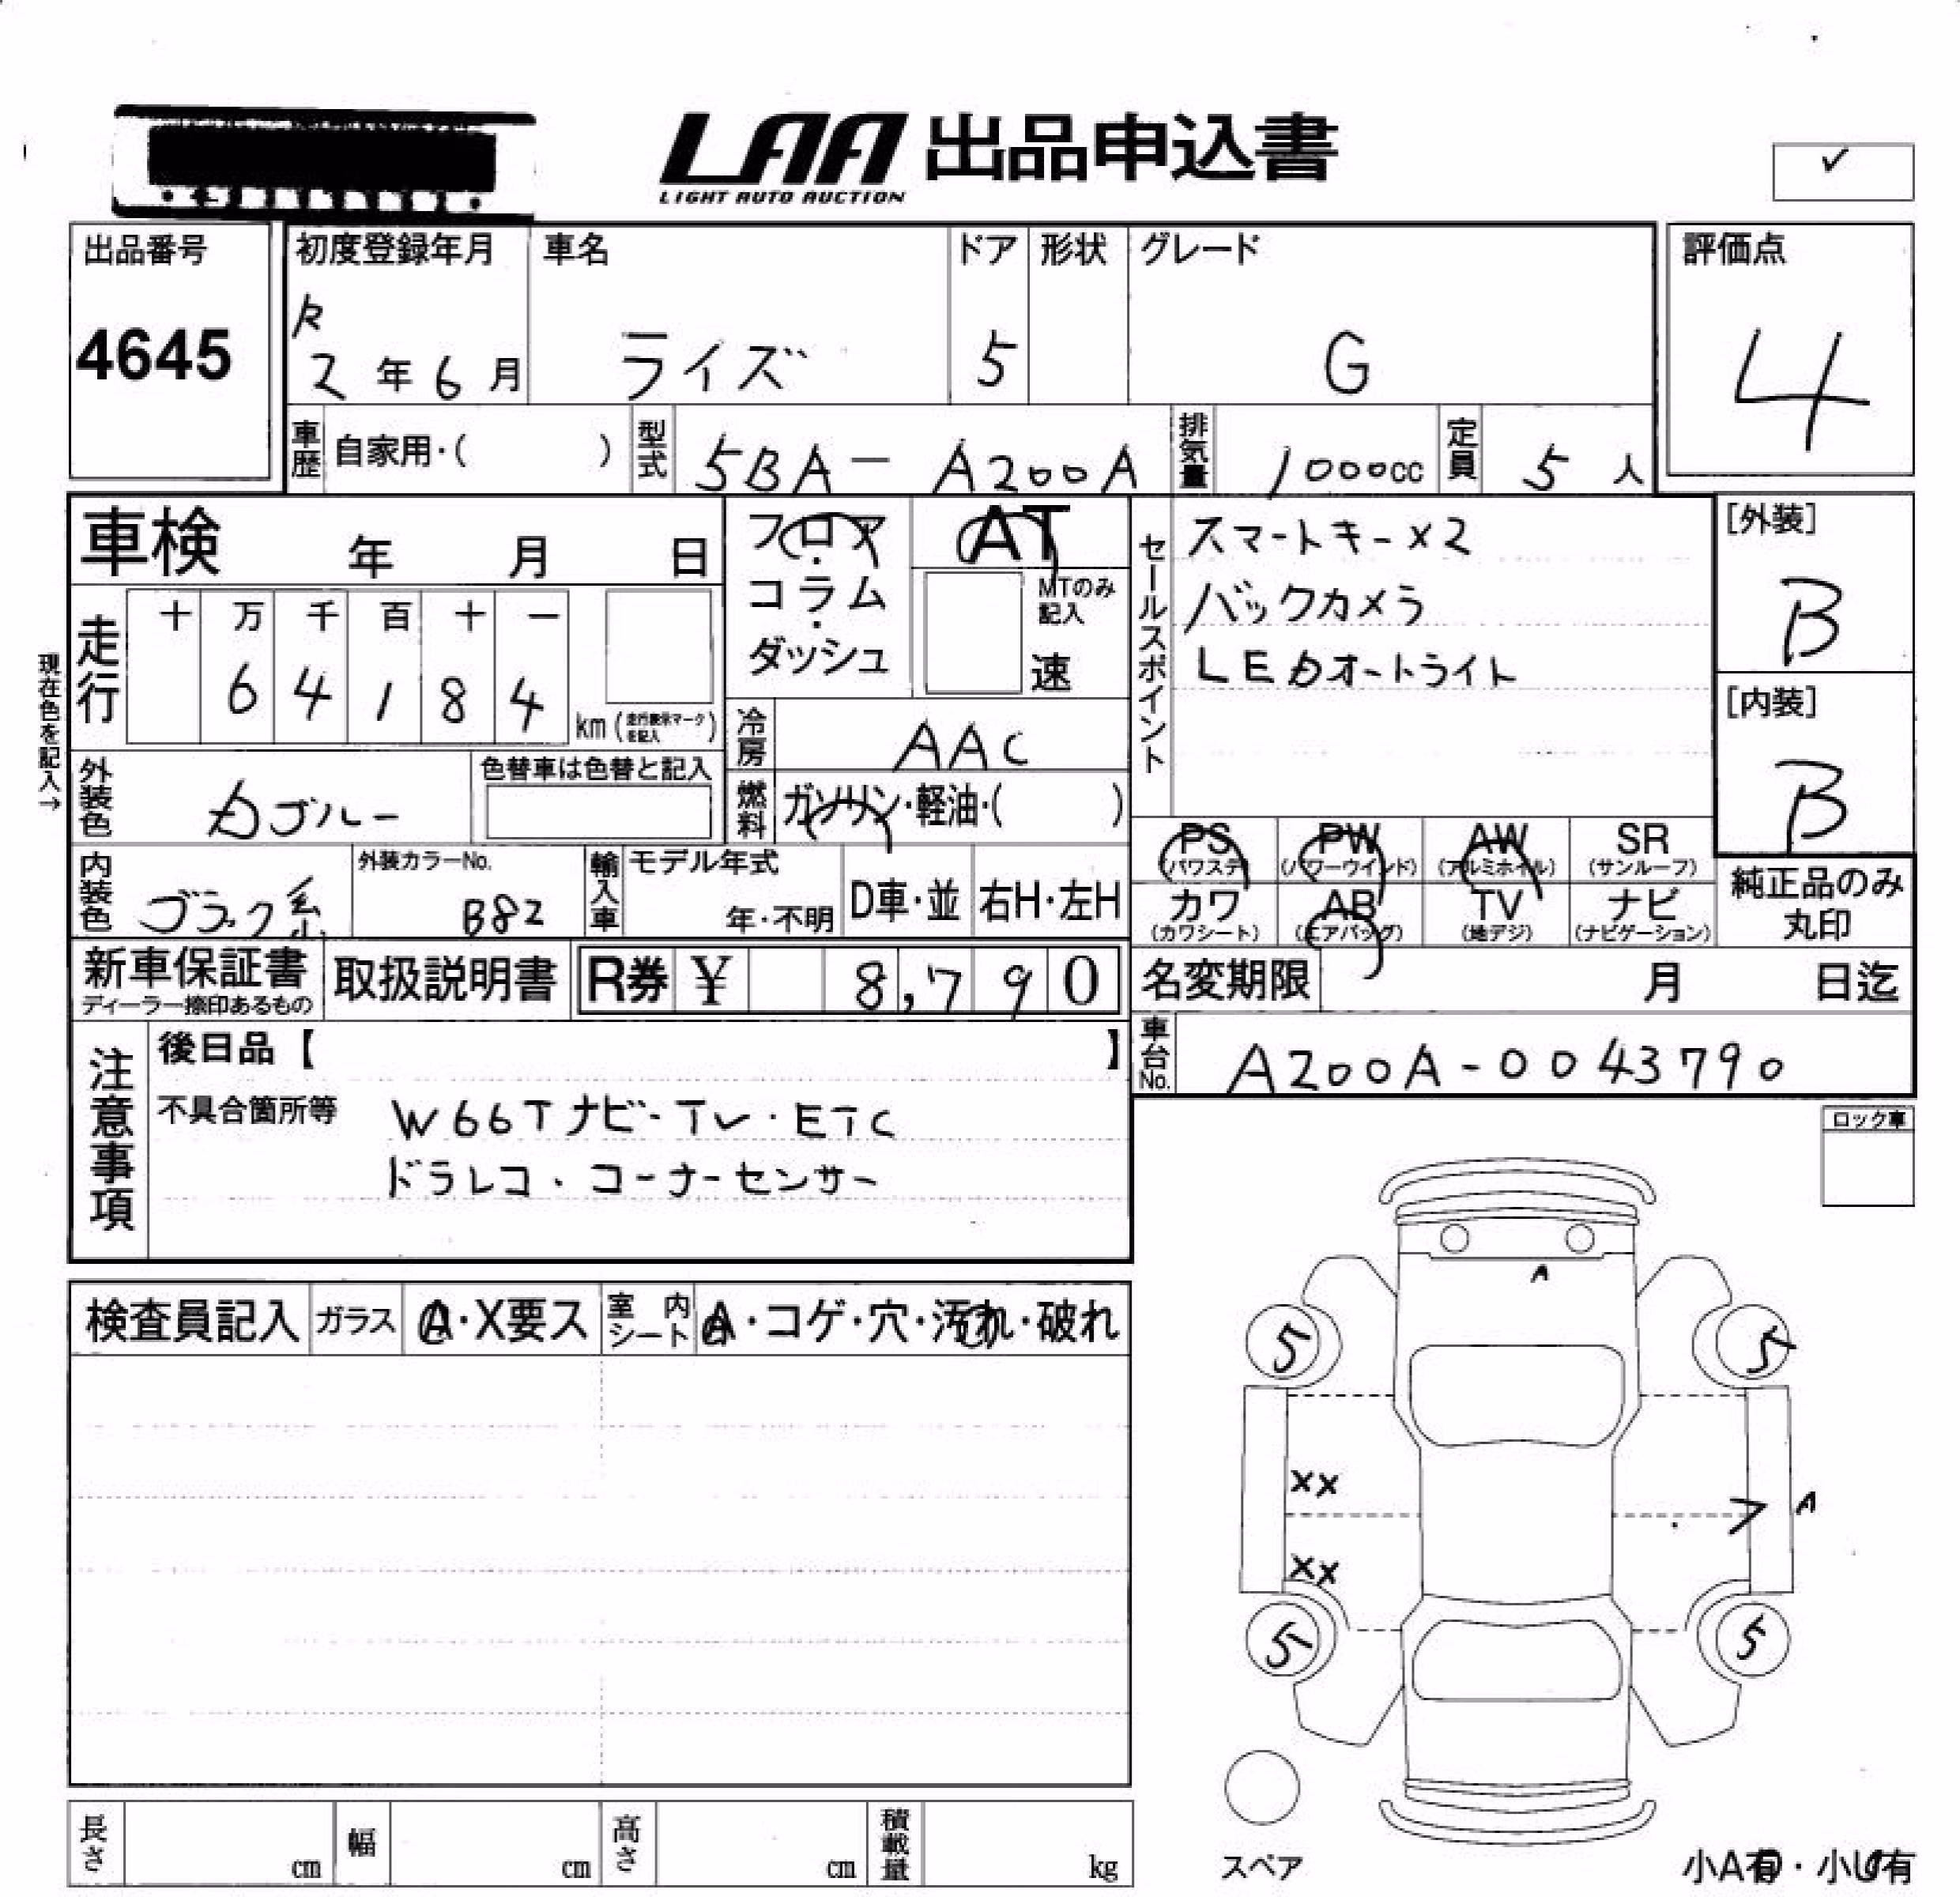 LAA 出品申込書
LIGHT AUTO AUCTION
✓
出品番号
4645
初度登録年月
R
2年6月
車名
ライズ
ドア
5
形状
グレード
G
評価点
4
車歴 自家用・( )
型式 5BA-A200A
排気量 1000cc
定員 5人
車検 年 月 日
フロア・コラム・ダッシュ
AT
MTのみ記入
速
セールスポイント
スマートキー×2
バックカメラ
LEDオートライト
[外装]
B
[内装]
B
現在色を記入→
走行
十 万 千 百 十 一
6 4 1 8 4
km (走行表示マークを記入)
冷房 AAC
燃料 ガソリン・軽油・( )
外装色
ブルー
色替車は色替と記入
内装色 ブラック系
外装カラーNo.
B82
輸入車
モデル年式
年・不明
D車・並
右H・左H
PS (パワステ)
PW (パワーウインド)
AW (アルミホイル)
SR (サンルーフ)
カワ (カワシート)
AB (エアバッグ)
TV (地デジ)
ナビ (ナビゲーション)
純正品のみ丸印
新車保証書
ディーラー捺印あるもの
取扱説明書
R券 ¥ 8,790
名変期限 月 日迄
車台No. A200A-0043790
注意事項
後日品【 】
不具合箇所等
W66Tナビ・TV・ETC
ドラレコ・コーナーセンサー
ロック車
検査員記入
ガラス
A・X要ス
室内シート
A・コゲ・穴・汚れ・破れ
A
5
5
XX
A
XX
5
5
スペア
長さ cm
幅 cm
高さ cm
積載量 kg
小A有・小U有